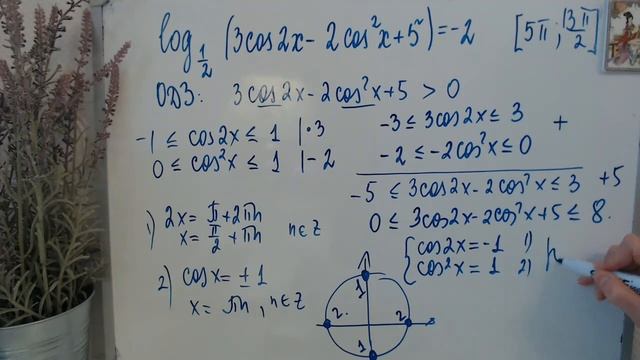 log_{1/2} (3cos2x - 2cos²x + 5) = -2 [5π; 13π/2]
ОДЗ: 3cos2x - 2cos²x + 5 > 0
-1 ≤ cos2x ≤ 1 |·3 -3 ≤ 3cos2x ≤ 3 +
0 ≤ cos²x ≤ 1 |-2 -2 ≤ -2cos²x ≤ 0
-5 ≤ 3cos2x - 2cos²x ≤ 3 +5
0 ≤ 3cos2x - 2cos²x + 5 ≤ 8.
1) 2x = π + 2πn
x = π/2 + πn n∈Z
{ cos2x = -1 1)
cos²x = 1 2)
2) cosx = ±1
x = πn, n∈Z
1
2. 2
1